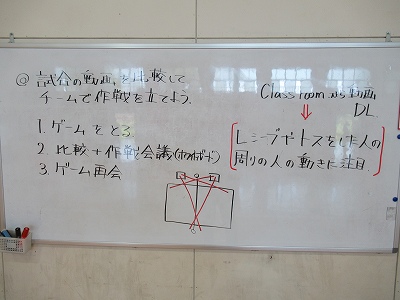 ◎ 試合の動画を比較して
チームで作戦を立てよう.
1. ゲームをとる
2. 比較+作戦会議(ホワイトボード)
3. ゲーム再会
Classroom から動画
DL
⇓
レシーブやトスをした人の
周りの人の動きに注目.